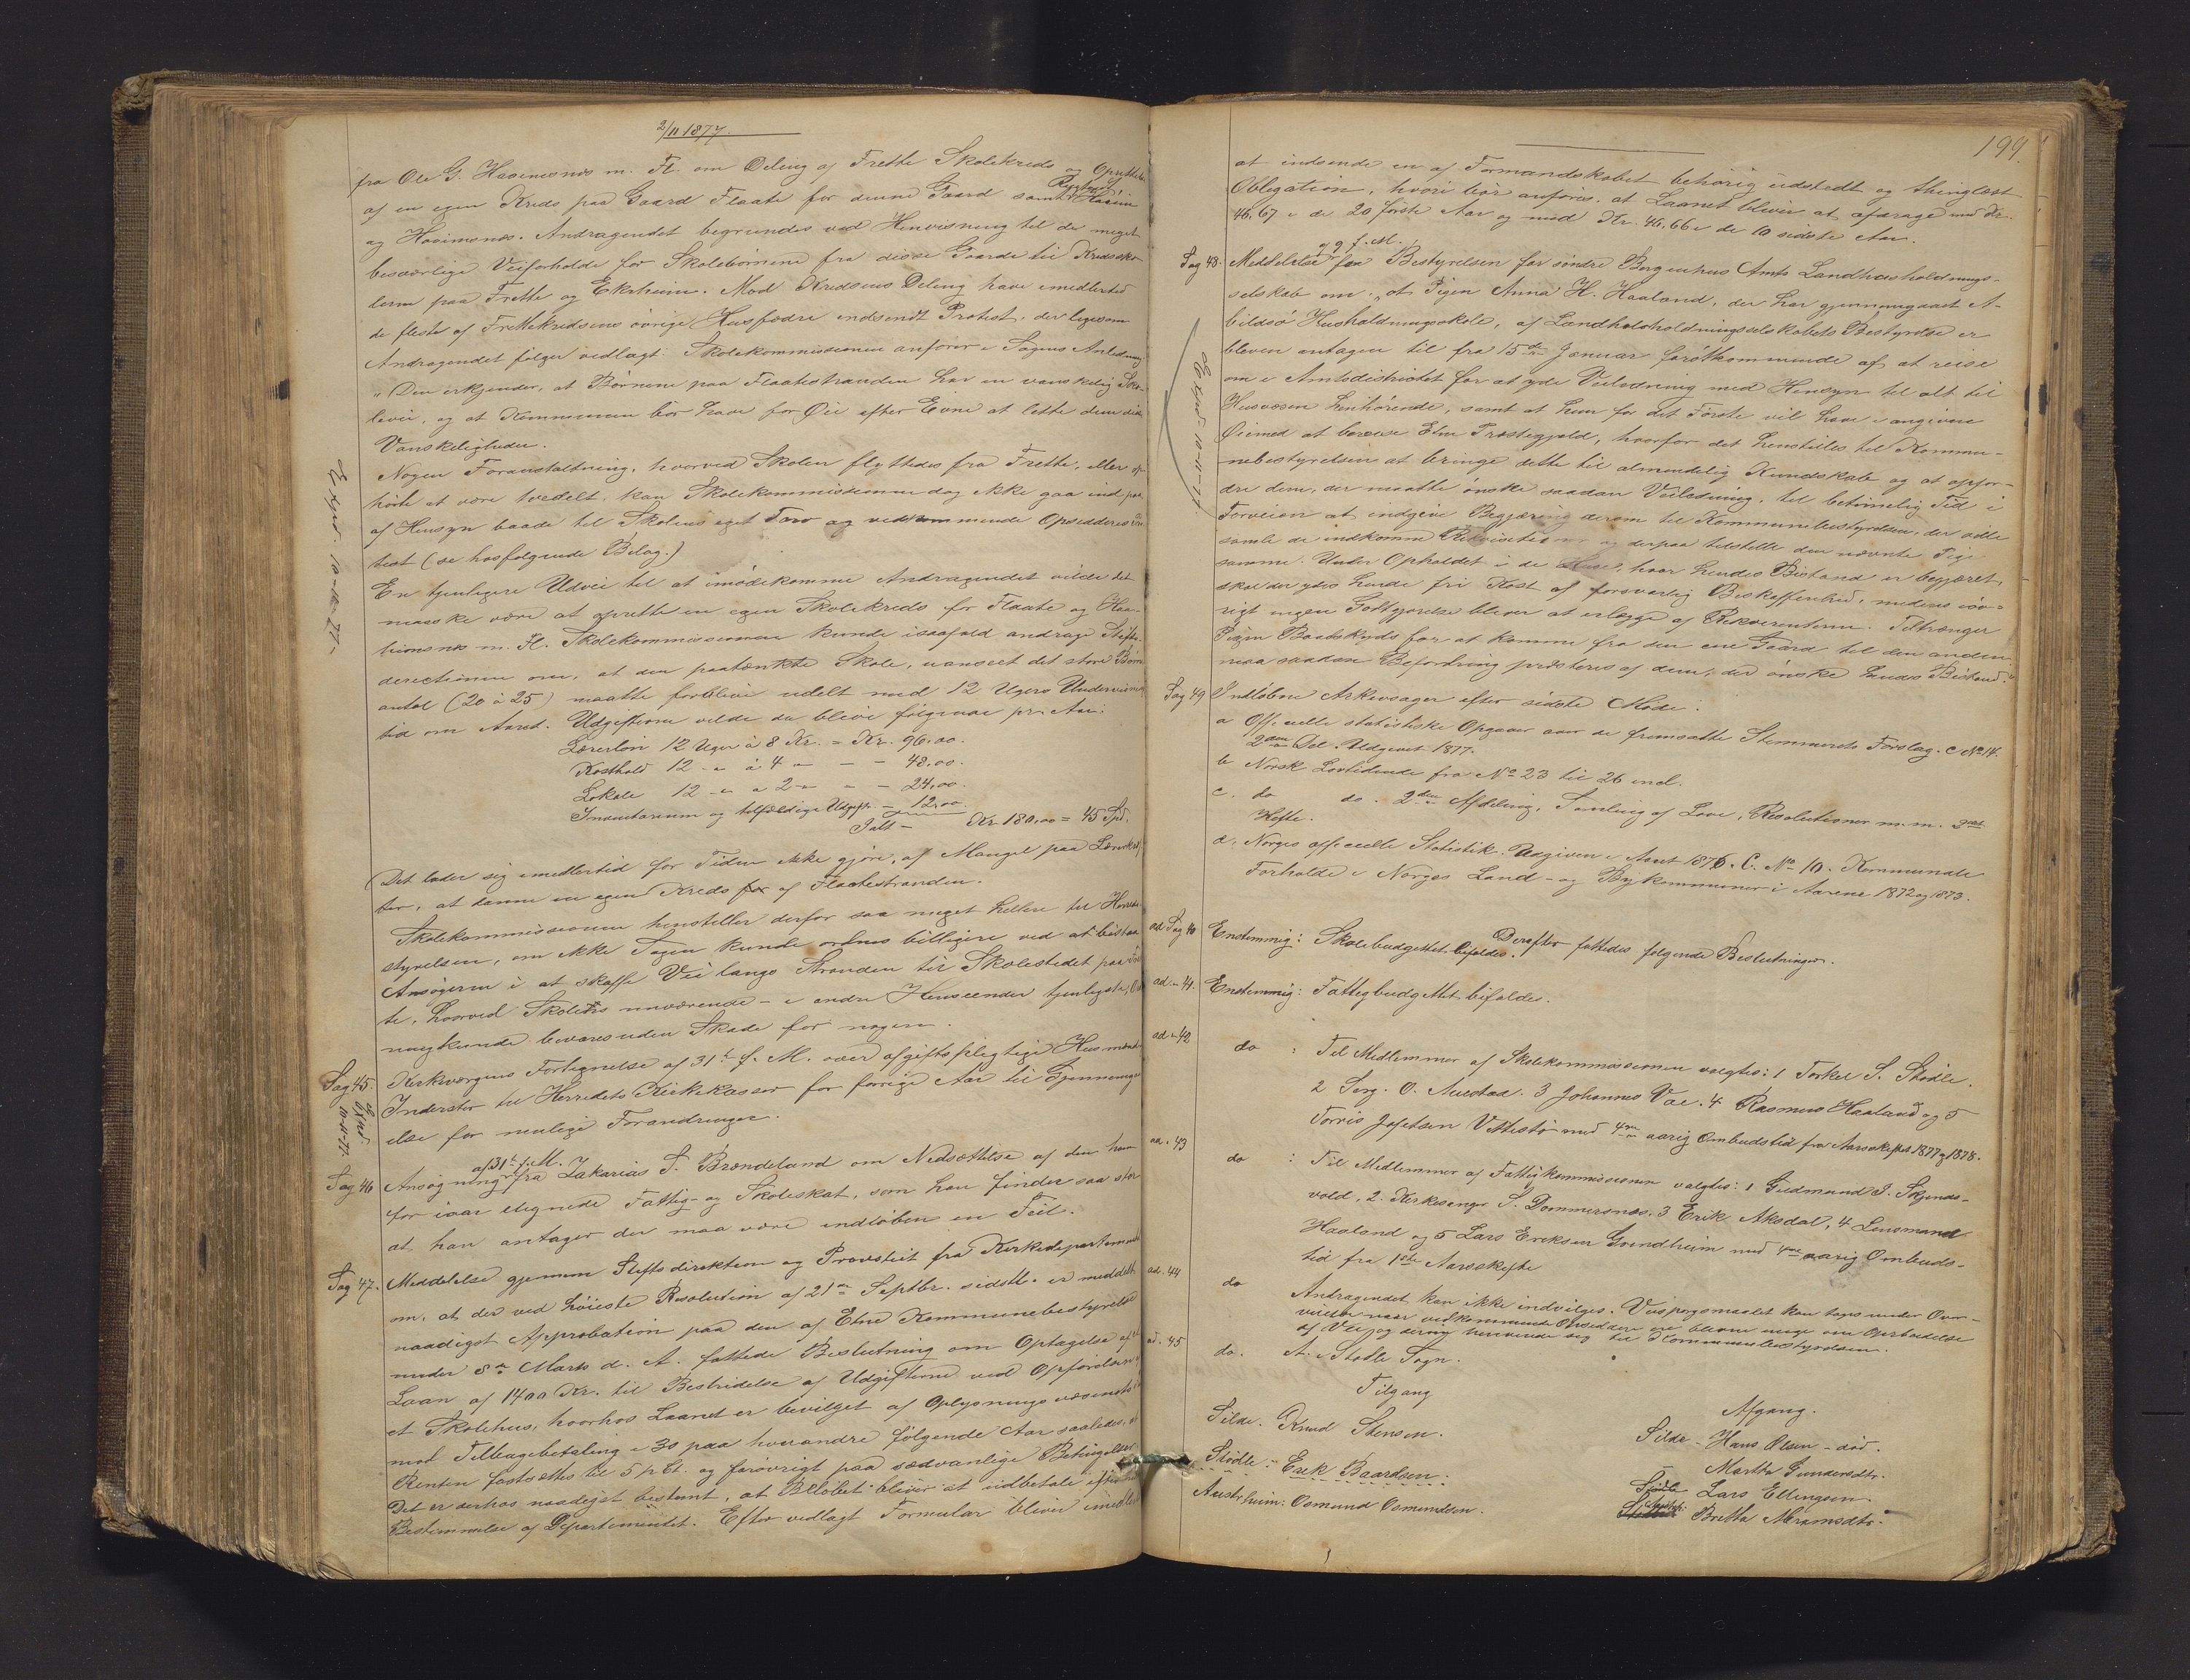 2/11 1877.
fra Ole G. Haaeimsnæs m. Fl. om Deling af Frette Skolekreds og Oprettelse
af en egen Kreds paa Gaard Flaate for denne Gaard samt
og Haaeimsnæs. Andragendet begrundes ved Henvisning til de meget
besværlige Veiforholde for Skolebørnene fra disse Gaarde til Kredssko-
lerne paa Frette og Ekrheim. Mod Kredsens Deling have imedlertid
de fleste af Frettekredsens øvrige Husfædre indsendt Protest, der ligesom
Andragendet følger vedlagt. Skolekommissionen anfører i Sagens Anledning:
"Den erkjender, at Børnene paa Flaatestranden har en vanskelig Sko-
levei, og at Kommunen bør have for Øie efter Evne at lette dem disse
Vanskeligheder.
Nogen Foranstaltning, hvorved Skolen flyttedes fra Frette, eller op-
hørte at være tvedelt, kan Skolekommissionen dog ikke gaa ind paa
af Hensyn baade til Skolens eget Tarv og vedkommende Opsidderes
test (se hosfølgende Bilag.)
En tjenligere Udvei til at imødekomme Andragendet vilde det
maaske være at oprette en egen Skolekreds for Flaate og Haa-
eimsnæs m. Fl. Skolekommissionen kunde isaafald andrage Stifts-
directionen om, at den paatænkte Skole, uanseet det store Børne-
antal (20 à 25) maatte forblive udelt med 12 Ugers Undervisnings-
tid om Aaret. Udgifterne vilde da blive følgende pr. Aar:
Lærerløn 12 Uger à 8 Kr. = Kr. 96,00.
Kosthold 12 - " - à 4 " - - 48,00.
Lokale 12 - " - à 2 " - - 24,00.
Inventarium og tilfældige Udgift. - 12,00.
Ialt - Kr. 180,00 = 45 Spd.
Det lader sig imedlertid for Tiden ikke gjøre, af Mangel paa Lærekræf-
ter, at danne en egen Kreds for af Flaatestranden.
Skolekommissionen henstiller derfor saa meget hellere til Herreds-
styrelsen, om ikke Sagen kunde ordnes billigere ved at bistaa
Ansøgerne i at skaffe Vei langs Stranden til Skolestedet paa Fret-
te, hvorved Skolens nuværende - i andre Henseender tjenligste, Ord-
ning kunde bevares uden Skade for nogen.
Expd. 10-11-77.
Sag 45. Kirkevergens Fortegnelse af 31te f. M. over afgiftspligtige Husmænd
Expd. 10-11-77. Inderster til Herredets Kirkekasser for forrige Aar til Gjennemgaa-
else for mulige Forandringer.
af 31te f. M.
Sag 46 Ansøgning fra Zakarias S. Brændeland om Nedsættelse af den ham
for iaar ilignede Fattig- og Skoleskat, som han finder saa stor
at han antager der maa være indløben en Feil.
Sag 47. Meddelelse gjennem Stiftsdirektion og Provsteit fra Kirkedepartementet
om, at der ved høieste Resolution af 21de Septbr. sidstl. er meddelt
naadigst Approbation paa den af Etne Kommunebestyrelse
under 8de Marts d. A. fattede Beslutning om Optagelse af et
Laan af 1400 Kr. til Bestridelse af Udgifterne ved Opførelsen af
et Skolehus, hvorhos Laanet er bevilget af Oplysningsvæsenets
mod Tilbagebetaling i 30 paa hverandre følgende Aar saaledes, at
Renten fastsættes til 5 pCt. og forøvrigt paa sædvanlige Betingelser
Det er derhos naadigst bestemt, at Beløbet bliver at udbetale efter
Bestemmelse af Departementet. Efter vedlagt Formular bliver imidlertid
199.
at indsende en af Formandskabet behørig udstedt og thinglæst
Obligation, hvori bør anføres, at Laanet bliver at afdrage med Kr.
46,67 i de 20 første Aar og med Kr. 46,66 i de 10 sidste Aar.
af 9 f. M.
Sag 48. Meddelelse fra Bestyrelsen for søndre Bergenhus Amts Landhusholdnings-
selskab om: "at Pigen Anna H. Haaland, der har gjennemgaaet A-
bildsø Husholdningsskole, af Landhusholdningsselskabets Bestyrelse er
bleven antagen til fra 15de Januar førstkommende af at reise
om i Amtsdistriktet for at yde Veiledning med Hensyn til alt til
Husvæsen henhørende, samt at hun for det Første vil have i angivne
Øiemed at bereise Etne Præstegjeld, hvorfor det henstilles til Kommu-
nebestyrelsen at bringe dette til almindelig Kundskab og at opfor-
dre dem, der maatte ønske saadan Veiledning, til betimelig Tid i
Forveien at indgive Begjæring derom til Kommunebestyrelsen, der vilde
samle de indkomne Rekvisitioner og derpaa tilstille den nævnte Pige
samme. Under Opholdet i de Huse, hvor hendes Bistand er begjæret,
skal der ydes hende fri Kost af forsvarlig Beskaffenhed, medens iøv-
rigt ingen Godtgjørelse bliver at erlægge af Rekvirenterne. Tiltrænger
Pigen Baadskyds for at komme fra den ene Gaard til den anden,
maa saadan Befordring præsteres af dem, der ønske hendes Bistand."
Expd. 10-11-77
Sag 49 Indløbne Arkivsager efter sidste Møde:
a Officielle statistiske Opgaver over de fremsatte Stemmerets Forslag. C No 14.
2den Del. Udgivet 1877.
b Norsk Lovtidende fra No 23 til 26 incl.
c. do do. 2den Afdeling, Samling af Love, Resolutioner m. m. 3die
Hefte.
d. Norges officielle Statistik. Udgiven i Aaret 1876. C. No 10. Kommunale
Forholde i Norges Land- og Bykommuner i Aarene 1872 og 1873.
Derefter fattedes følgende Beslutninger.
ad Sag 40 Enstemmig: Skolebudgettet bifaldes.
ad " 41. Enstemmig: Fattigbudgettet bifaldes.
ad " 42 do : Til Medlemmer af Skolekommissionen valgtes: 1 Torkel S. Stødle.
2 Serg. O. Austad. 3 Johannes Vae. 4 Rasmus Haaland og 5
Torris Josefsen Vettestø med 4re aarig Ombudstid fra Aarsskiftet 1877 og 1878.
ad " 43 do : Til Medlemmer af Fattigkommissionen valgtes: 1 Gudmund I.
vold, 2. Kirkesanger S. Dommersnæs. 3 Erik Aksdal, 4 Lensmand
Haaland og 5 Lars Eriksen Grindheim med 4re aarig Ombuds-
tid fra 1ste Aarsskifte
ad. 44 do Andragendet kan ikke indvilges. Veispørgsmaalet kan tages under Over-
veielse naar vedkommende Opsiddere ere blevne enige om Oparbeidelse
af Vei og derom henvende sig til Kommunebestyrelsen.
ad. 45 do. A. i Stødle Sogn.
Tilgang
Afgang.
Silde. Knud Stensen.
Silde - Hans Olsen - død.
Martha Gundersdtr.
Stødle - Erik Baardsen.
Stødle Lars Ellingsen.
Austrheim: Osmund Osmundsen.
Britha